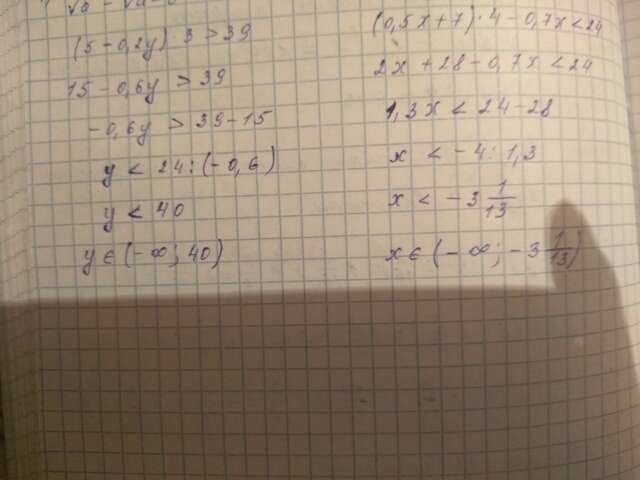 (5-0,2y) · 3 > 39
15 - 0,6y > 39
-0,6y > 39-15
y < 24 : (-0,6)
y < 40
y ∈ (-∞; 40)
(0,5x+7) · 4 - 0,7x < 24
2x + 28 - 0,7x < 24
1,3x < 24-28
x < -4 : 1,3
x < -3 1/13
x ∈ (-∞; -3 1/13)